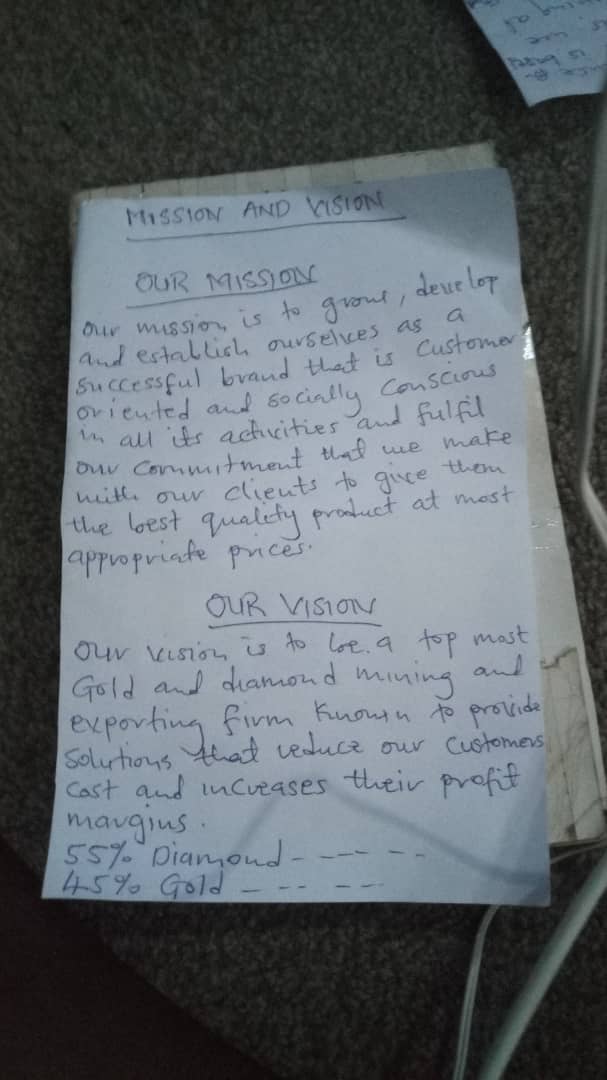 MISSION AND VISION
OUR MISSION
Our mission is to grow, develop
and establish ourselves as a
successful brand that is customer
oriented and socially conscious
in all its activities and fulfil
our commitment that we make
with our clients to give them
the best quality product at most
appropriate prices.
OUR VISION
Our vision is to be a top most
Gold and diamond mining and
exporting firm known to provide
solutions that reduce our customers
cost and increases their profit
margins.
55% Diamond - - - - - -
45% Gold - - - - - -